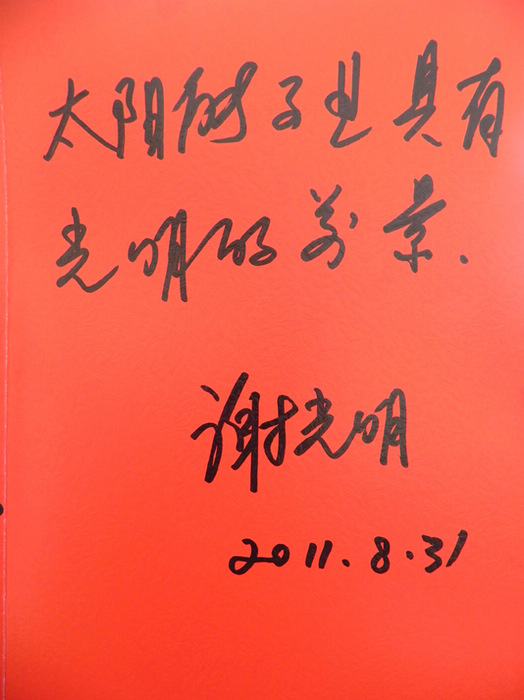 太阳能产业具有
光明的前景.
谢光明
2011.8.31